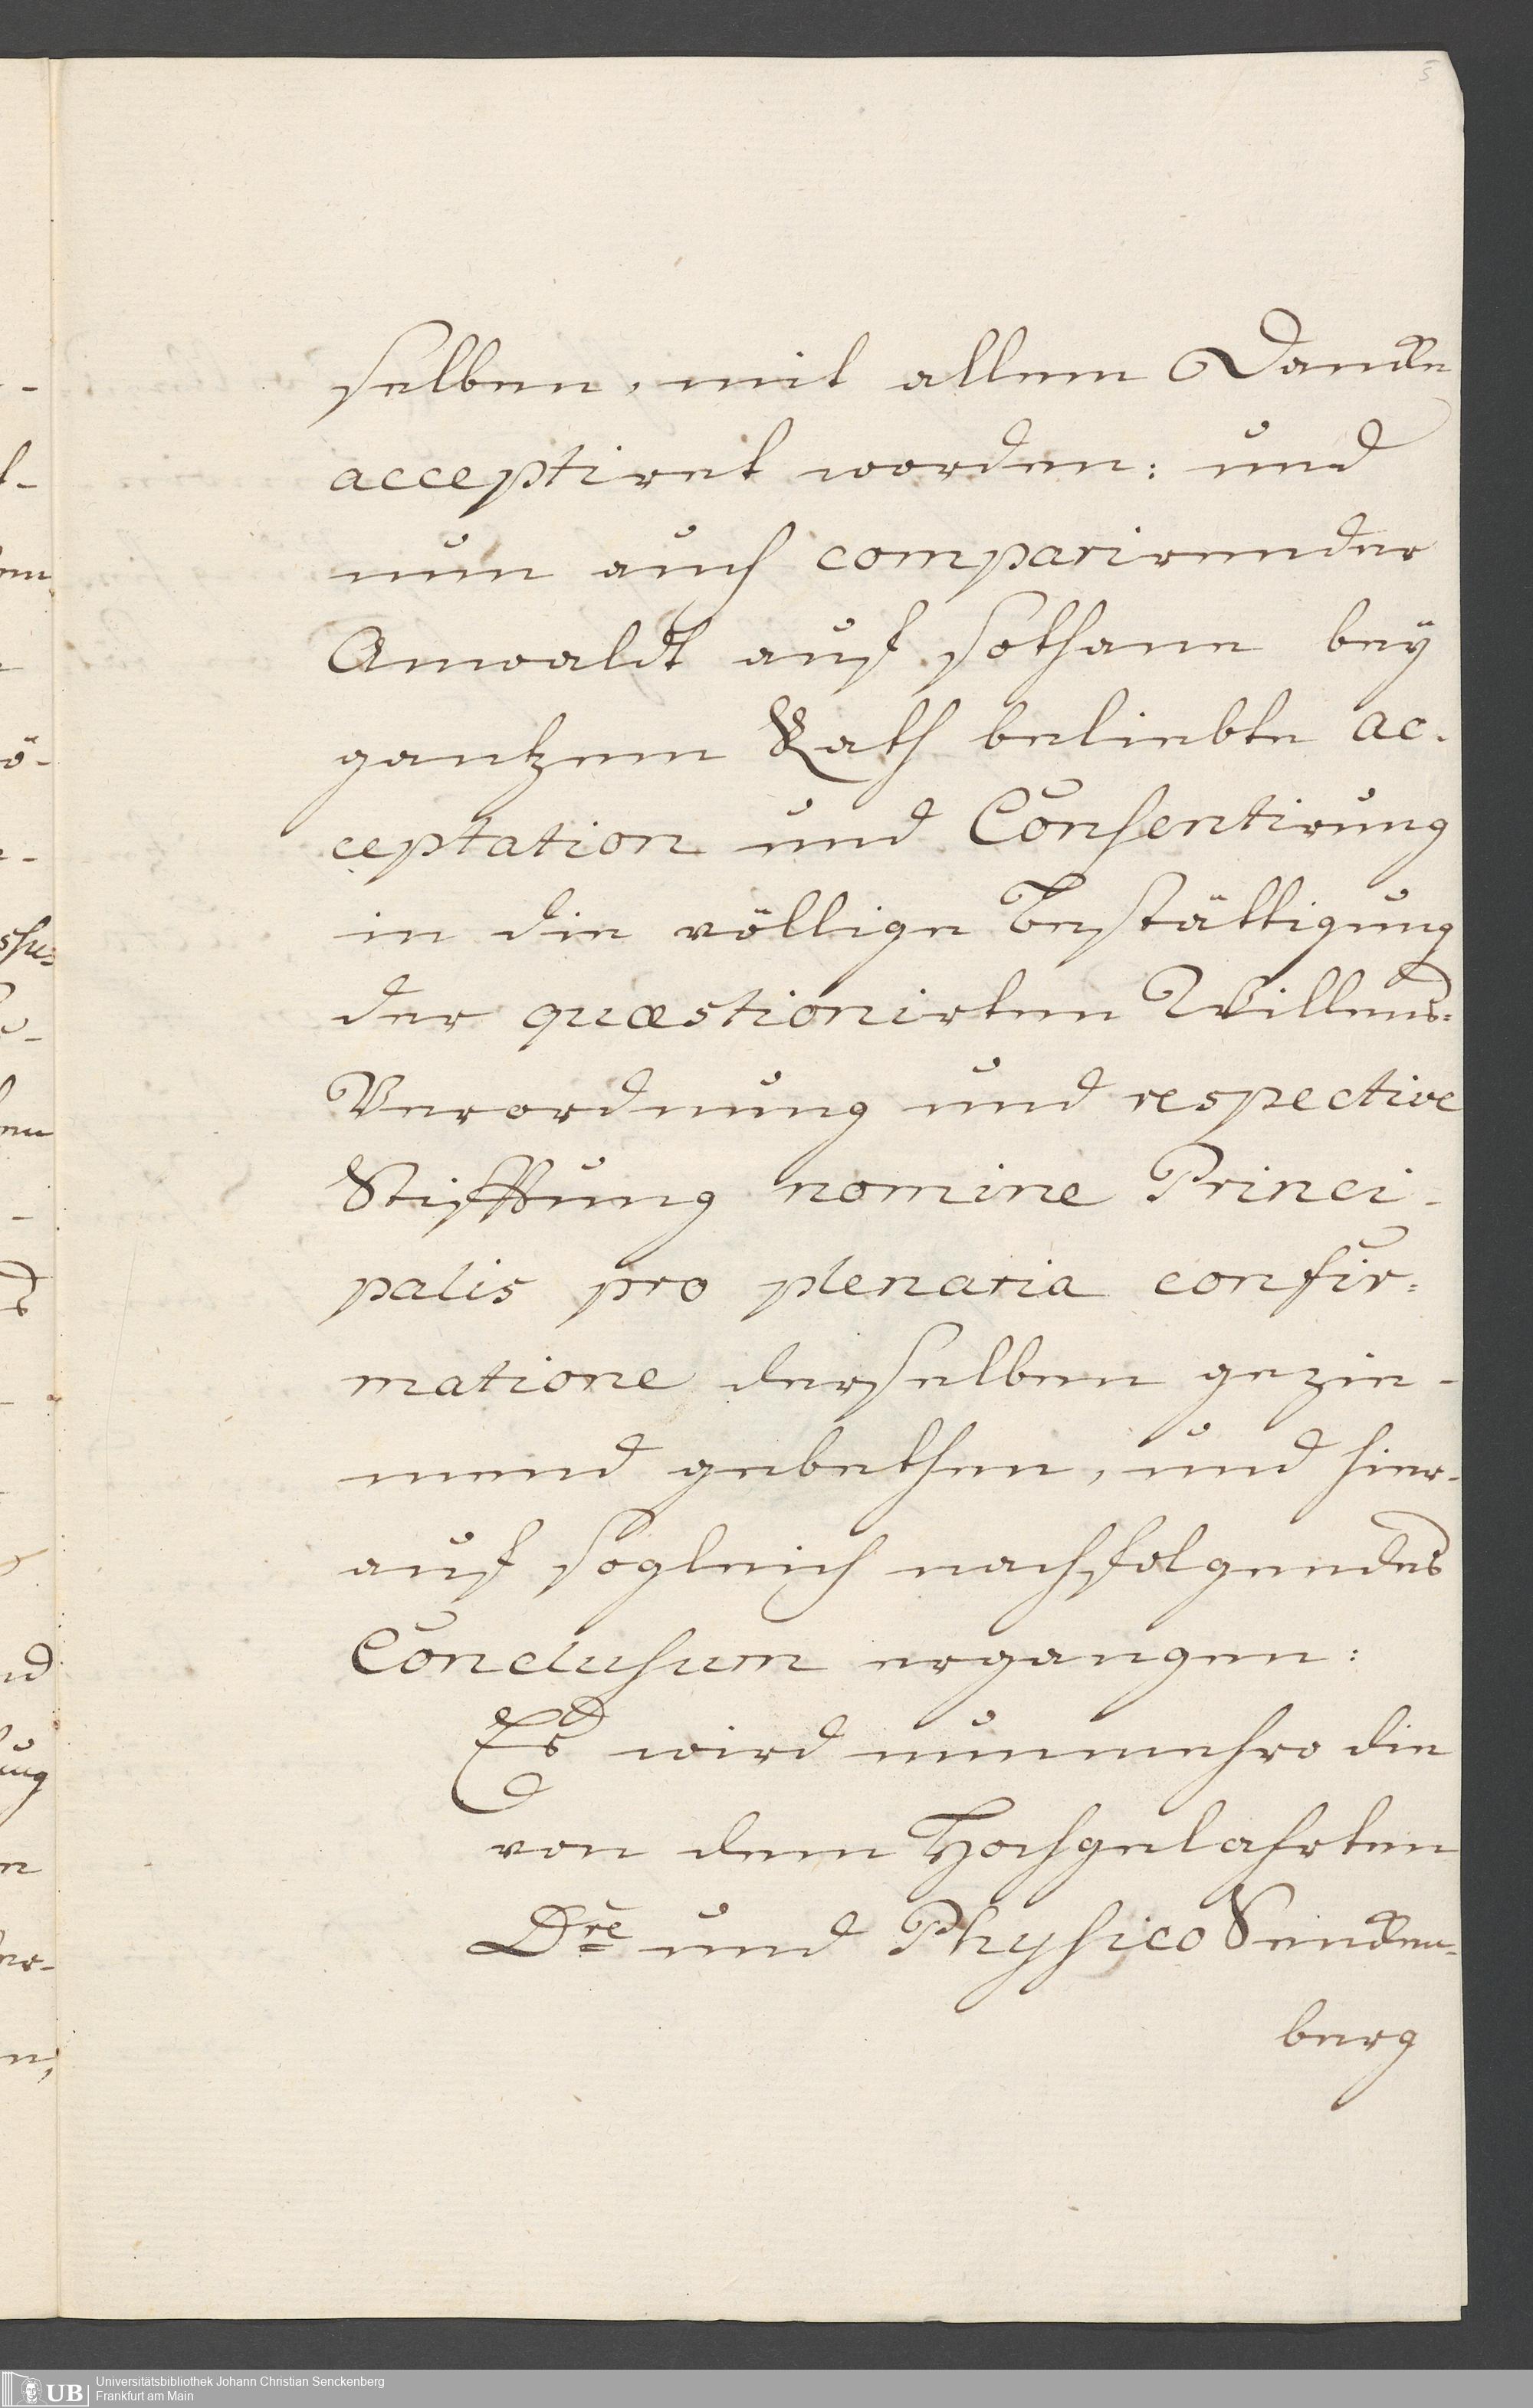 5
selben, mit allem Dancke
acceptiret worden: und
nun auch comparirender
Anwaldt auf sothane bey
gantzem Rath beliebte ac-
ceptation und Consentirung
in die völlige Bestättigung
der quæstionirten Willens-
Verordnung und respective
Stifftung nomine Princi-
palis pro plenaria confir-
matione derselben gezie-
mend gebethen, und hier-
auf sogleich nachfolgendes
Conclusum ergangen:
Es wird nunmehro die
von dem Hochgelahrten
Dre und Physico Sencken-
berg
UB
Universitätsbibliothek Johann Christian Senckenberg
Frankfurt am Main